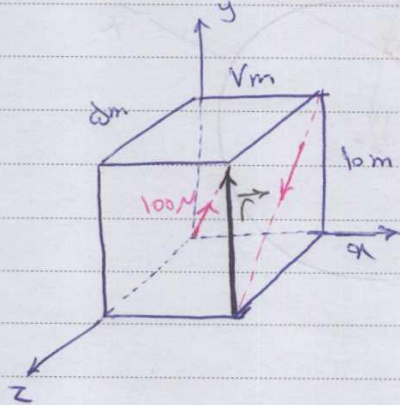 y
۷m
۵m
10 m
100N
r⃗
x
z